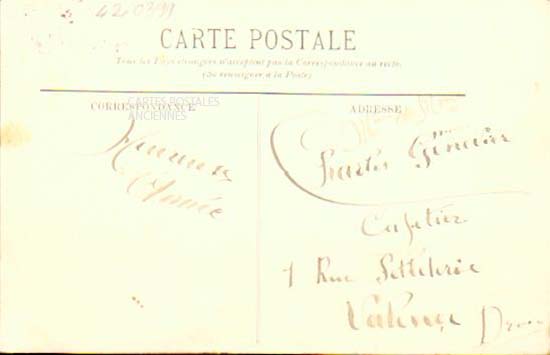 420391
CARTE POSTALE
Tous les Pays étrangers n'acceptent pas la Correspondance au recto.
(Se renseigner à la Poste)
CORRESPONDANCE
CARTES POSTALES
ANCIENNES
Heureuse
Année
ADRESSE
Cafetier
1 Rue
Valence Drôme